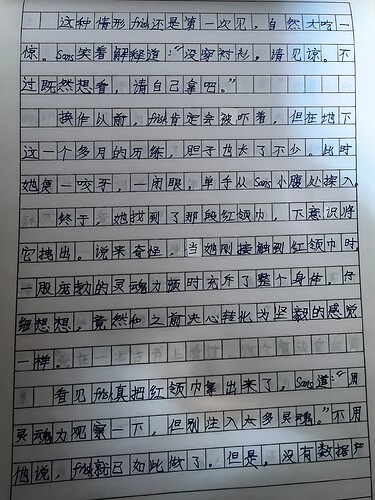 这种情形frisk还是第一次见，自然大吃一
惊。Sans笑着解释道：“没穿衬衫，请见谅。不
过既然想看，请自己拿吧。”
换作以前，frisk肯定会被吓着，但在地下
这一个多月的历练，胆子也大了不少。此时
她便一咬牙，一闭眼，单手从Sans小腹处探入。
终于，她找到了那段红领巾，下意识将
它拽出。说来奇怪，当她刚接触到红领巾时，
一股蓬勃的灵魂力顿时充斥了整个身体，仔
细想想，竟然和之前决心转化为坚毅的感觉
一样。
看见frisk真把红领巾拿出来了，Sans道：“用
灵魂力观察一下，但别注入太多灵魂。”不用
他说，frisk就已如此做了。但是，没有数据产